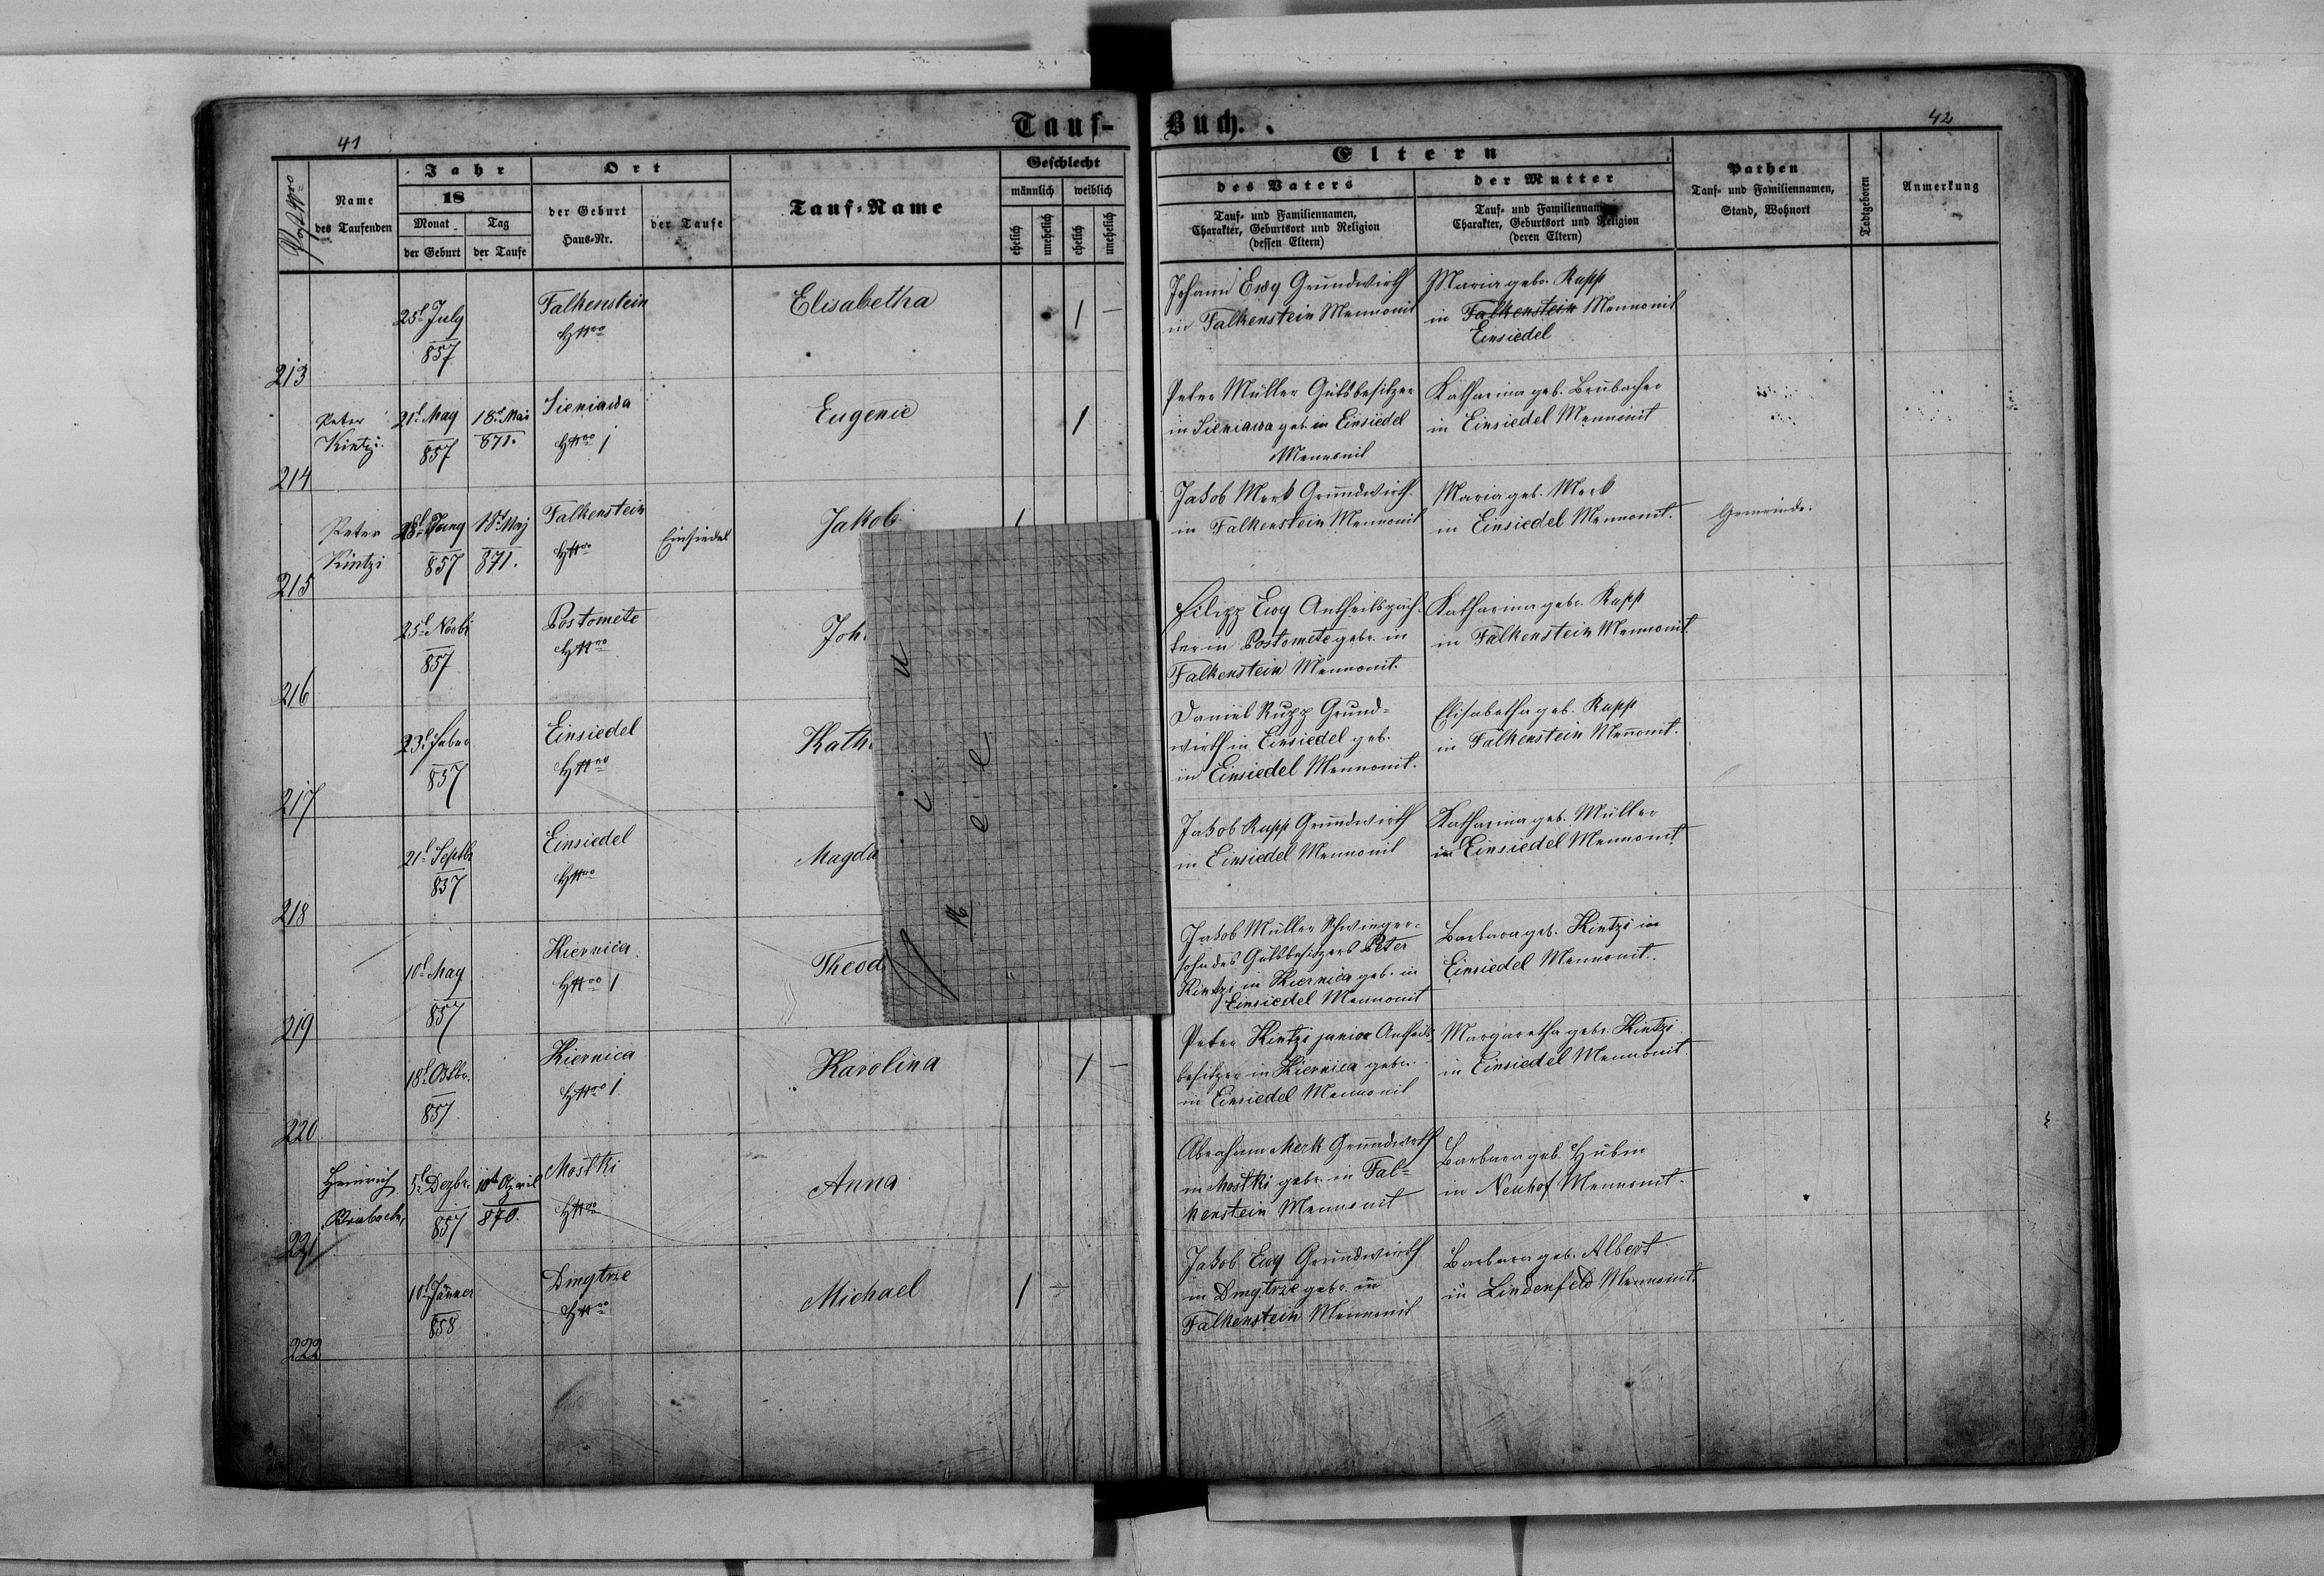 41
Tauf-
Buch.
42
Post Nro
Name
des Taufenden
Jahr
18
Monat
der Geburt
Tag
der Taufe
Ort
der Geburt
Haus-Nr.
der Taufe
Tauf-Name
Geschlecht
männlich weiblich
ehelich unehelich ehelich unehelich
Eltern
des Vaters
Tauf- und Familiennamen,
Charakter, Geburtsort und Religion
(dessen Eltern)
der Mutter
Tauf- und Familiennamen
Charakter, Geburtsort und Religion
(deren Eltern)
Pathen
Tauf- und Familiennamen,
Stand, Wohnort
Todtgeboren
Anmerkung
213
25t July
857
Falkenstein
HNro
Elisabetha
1 —
Johann Ewy Grundwirth
in Falkenstein Mennonit
Maria gebr. Rupp
in Falkenstein Mennonit
Einsiedel
214
Peter
Kintzi
21t May
857
18t Mai
871.
Sieniawa
HNro 1
Eugenie
1
Peter Müller Gutsbesitzer
in Sieniawa geb. in Einsiedel
Mennonit
Katharina geb. Brubacher
in Einsiedel Mennonit
215
Peter
Kintzi
857
18t Maj
871.
Falkenstein
HNro
Einsiedel
Jakob
1
Jakob Merk Grundwirth
in Falkenstein Mennonit
Maria geb. Merk
in Einsiedel Mennonit.
Gemeinde.
216
25t Novbr
857
Postomete
HNro
Joh
Filipp Ewy Antheilspäch-
ter in Postomete gebr. in
Falkenstein Mennonit.
Katharina gebr. Rupp
in Falkenstein Mennonit.
217
23t Feber
857
Einsiedel
HNro
Kath
Daniel Rupp Grund-
wirth in Einsiedel geb.
in Einsiedel Mennonit.
Elisabetha geb. Rupp
in Falkenstein Mennonit.
218
21t Septbr
857
Einsiedel
HNro
Magda
Jakob Rupp Grundwirth
in Einsiedel Mennonit
Katharina geb. Müller
in Einsiedel Mennonit
219
10t May
857
Kiernica
HNro 1
Theod
Jakob Müller Schwieger-
sohn des Gutsbesitzers Peter
Kintzi in Kiernica geb. in
Einsiedel Mennonit
Barbara geb. Kintzi in
Einsiedel Mennonit.
220
18t Oktbr.
857
Kiernica
HNro 1
Karolina
1 —
Peter Kintzi junior Antheils
besitzer in Kiernica gebr.
in Einsiedel Mennonit
Margaretha gebr. Kintzi
in Einsiedel Mennonit.
221
Heinrich
5t Dezbr.
857
10t April
870.
Mostki
HNro
Anna
Abraham Merk Grundwirth
in Mostki gebr. in Fal-
kenstein Mennonit
Barbara geb. Hubin
in Neuhof Mennonit.
222
10t Jänner
858
Dmytrze
HNro
Michael
1 —
Jakob Ewy Grundwirth
in Dmytrze gebr. in
Falkenstein Mennonit
Barbara geb. Albert
in Lindenfeld Mennonit.